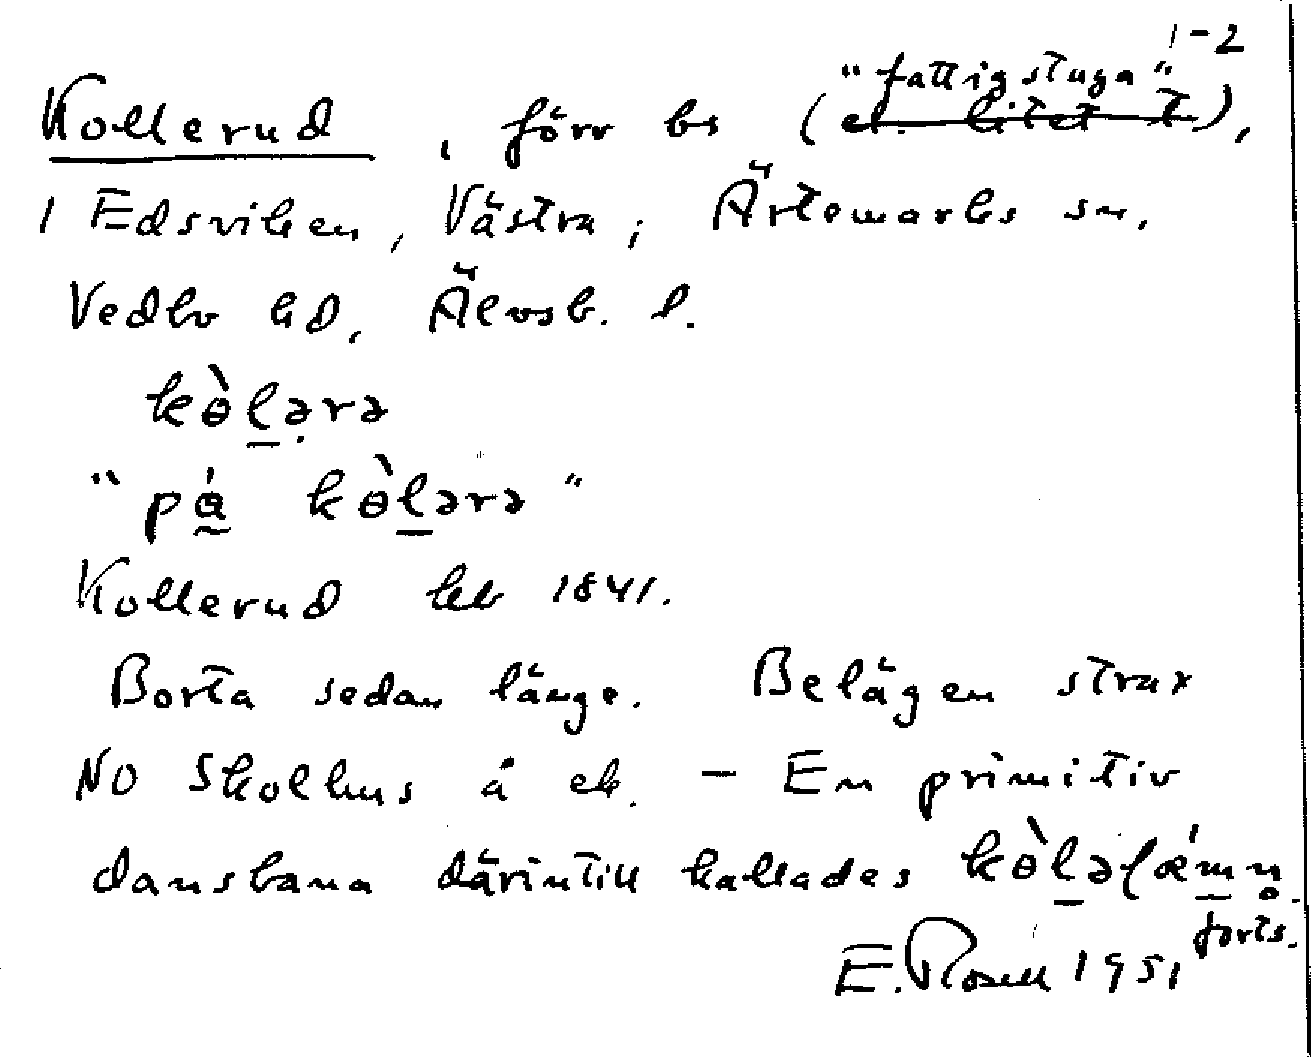 1-2
"fattigstuga"
Kollerud, förr bs (el. litet t),
i Edsviken, Västra; Ärtemarks sn,
Vedbo hd, Älvsb. l.
kɵ̀l̠ə̣rə
"på̰ kɵ̀l̠ərə"
Kollerud kb 1841.
Borta sedan länge. Belägen strax
NO Skolhus å ek. - En primitiv
dansbana därintill kallades kɵ̀l̠əlǽm̠n̥.
forts.
E. Rosell 1951